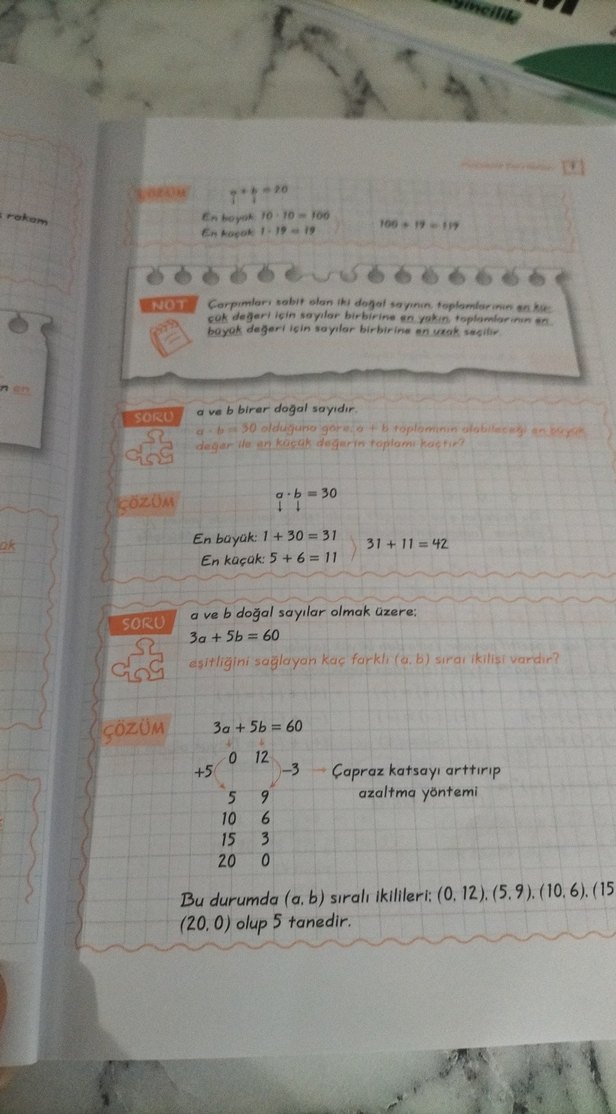 yıncilik
9
ÇÖZÜM
a + b = 20
En büyük: 10 · 10 = 100
En küçük: 1 · 19 = 19
100 + 19 = 119
rakam
NOT
Çarpımları sabit olan iki doğal sayının, toplamlarının en kü-
çük değeri için sayılar birbirine en yakın, toplamlarının en
büyük değeri için sayılar birbirine en uzak seçilir.
n en
SORU
a ve b birer doğal sayıdır.
a · b = 30 olduğuna göre, a + b toplamının alabileceği en büyük
değer ile en küçük değerin toplamı kaçtır?
ÇÖZÜM
a · b = 30
En büyük: 1 + 30 = 31
En küçük: 5 + 6 = 11
31 + 11 = 42
SORU
a ve b doğal sayılar olmak üzere;
3a + 5b = 60
eşitliğini sağlayan kaç farklı (a, b) sıralı ikilisi vardır?
ÇÖZÜM
3a + 5b = 60
0 12
+5 -3 → Çapraz katsayı arttırıp
azaltma yöntemi
5 9
10 6
15 3
20 0
Bu durumda (a, b) sıralı ikilileri; (0, 12), (5, 9), (10, 6), (15
(20, 0) olup 5 tanedir.